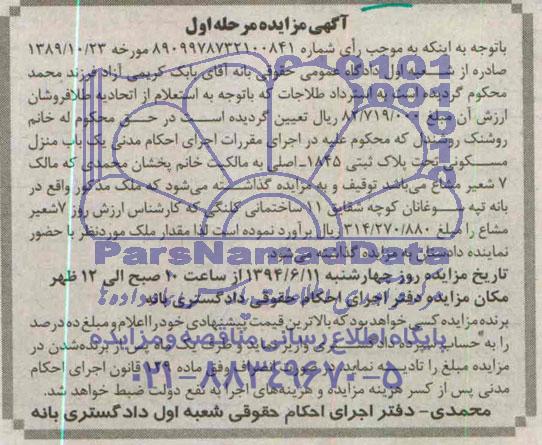 آگهی مزایده مرحله اول
باتوجه به اینکه به موجب رأی شماره ۸۹۰۹۹۷۸۷۳۲۱۰۰۸۴۱ مورخه ۱۳۸۹/۱۰/۲۳
صادره از شعبه اول دادگاه عمومی حقوقی بانه آقای بابک کریمی آزاد فرزند محمد
محکوم گردیده است به استرداد طلاجات که باتوجه به استعلام از اتحادیه طلافروشان
ارزش آن مبلغ ۸۲/۷۱۹/۰۰۰ ریال تعیین گردیده است در حق محکوم له خانم
روشنک روشندل که محکوم علیه در اجرای مقررات اجرای احکام مدنی یک باب منزل
مسکونی تحت پلاک ثبتی ۱۸۴۵-اصلی به مالکیت خانم پخشان محمدی که مالک
۷ شعیر مشاع می‌باشد توقیف و به مزایده گذاشته می‌شود که ملک مذکور واقع در
بانه تپه سوغانان کوچه شقایق ۱۱ ساختمانی کلنگی که کارشناس ارزش روز ۷شعیر
مشاع را مبلغ ۳۱۴/۲۷۰/۸۸۰ ریال برآورد نموده است لذا مقدار ملک موردنظر با حضور
نماینده دادستان به مزایده گذاشته می‌شود.
ParsNamadData
تاریخ مزایده روز چهارشنبه ۱۳۹۴/۶/۱۱ از ساعت ۱۰ صبح الی ۱۲ ظهر
مکان مزایده دفتر اجرای احکام حقوقی دادگستری بانه
برنده مزایده کسی خواهد بود که بالاترین قیمت پیشنهادی خود را اعلام و مبلغ ده درصد
را به حساب سپرده دادگستری واریز نماید و ظرف یک ماه پس از برنده‌شدن در
پایگاه اطلاع رسانی مناقصه و مزایده
مزایده مبلغ را تادیه نماید در صورت انصراف وفق ماده ۱۲۹ قانون اجرای احکام
۰۲۱-۸۸۳۴۹۶۷۰-۵
مدنی پس از کسر هزینه مزایده و هزینه‌های اجرا به نفع دولت ضبط خواهد شد.
محمدی- دفتر اجرای احکام حقوقی شعبه اول دادگستری بانه